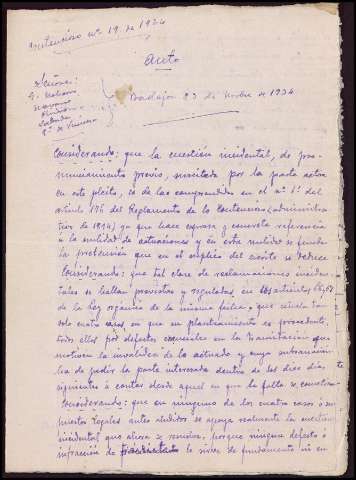 Contencioso nº 19 de 1934
Auto
Señores:
Navarro
Badajoz 23 de
de 1934
Considerando: que la cuestión incidental, de pro-
nunciamiento previo, suscitada por la parte actora
en este pleito, es de las comprendidas en el nº 1º del
artículo 176 del Reglamento de lo Contencioso (administra-
tivo de 1894) ya que hace expresa y concreta referencia
a la nulidad de actuaciones y en esta nulidad se funda
la pretensión que en el suplico del escrito se deduce
Considerando: que tal clase de reclamaciones inciden-
tales se hallan previstas y reguladas en los artículos
de la Ley orgánica de la misma fecha, que señala tan
solo cuatro casos en que su planteamiento es procedente,
todos ellos por defectos esenciales en la tramitación que
motiven la invalidez de lo actuado y cuya subsanación
ha de pedir la parte interesada dentro de los diez días
siguientes a contar desde aquel en que la falta se cometiera
Considerando: que en ninguno de los cuatro casos o su-
puestos legales antes aludidos se apoya realmente la cuestión
incidental que ahora se resuelve, porque ningun defecto o
infracción de le sirve de fundamento ni en